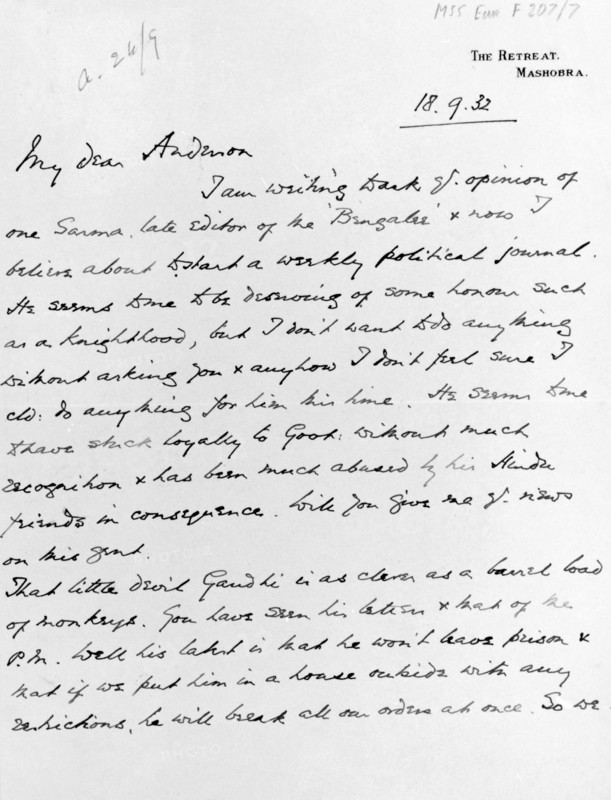 MSS Eur F 207/7
a. 24/9
THE RETREAT.
MASHOBRA.
18. 9. 32
My dear Anderson
I am writing to ask yr. opinion of
one Sarma, late editor of the 'Bengalee' & now I
believe about to start a weekly political journal.
He seems to me to be deserving of some honour such
as a Knighthood, but I don't want to do anything
without asking you & anyhow I don't feel sure I
cld: do anything for him this time. He seems to me
to have stuck loyally to Govt: without much
recognition & has been much abused by his Hindu
friends in consequence. Will you give me yr. views
on this gent.
That little devil Gandhi is as clever as a barrel load
of monkeys. You have seen his letters & that of the
P.M. Well his latest is that he won't leave prison &
that if we put him in a house outside with any
restrictions, he will break all our orders at once. So we